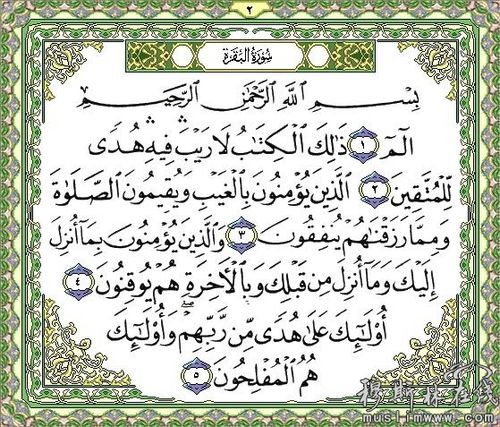 ٢
سُورَةُ البَقَرَةِ
بِسْمِ ٱللَّهِ ٱلرَّحْمَٰنِ ٱلرَّحِيمِ
الٓمٓ ١ ذَٰلِكَ ٱلْكِتَٰبُ لَا رَيْبَ ۛ فِيهِ ۛ هُدًى
لِّلْمُتَّقِينَ ٢ ٱلَّذِينَ يُؤْمِنُونَ بِٱلْغَيْبِ وَيُقِيمُونَ ٱلصَّلَوٰةَ
وَمِمَّا رَزَقْنَٰهُمْ يُنفِقُونَ ٣ وَٱلَّذِينَ يُؤْمِنُونَ بِمَآ أُنزِلَ
إِلَيْكَ وَمَآ أُنزِلَ مِن قَبْلِكَ وَبِٱلْءَاخِرَةِ هُمْ يُوقِنُونَ ٤
أُو۟لَٰٓئِكَ عَلَىٰ هُدًى مِّن رَّبِّهِمْ ۖ وَأُو۟لَٰٓئِكَ
هُمُ ٱلْمُفْلِحُونَ ٥
穆斯林在线
muslimwww.com